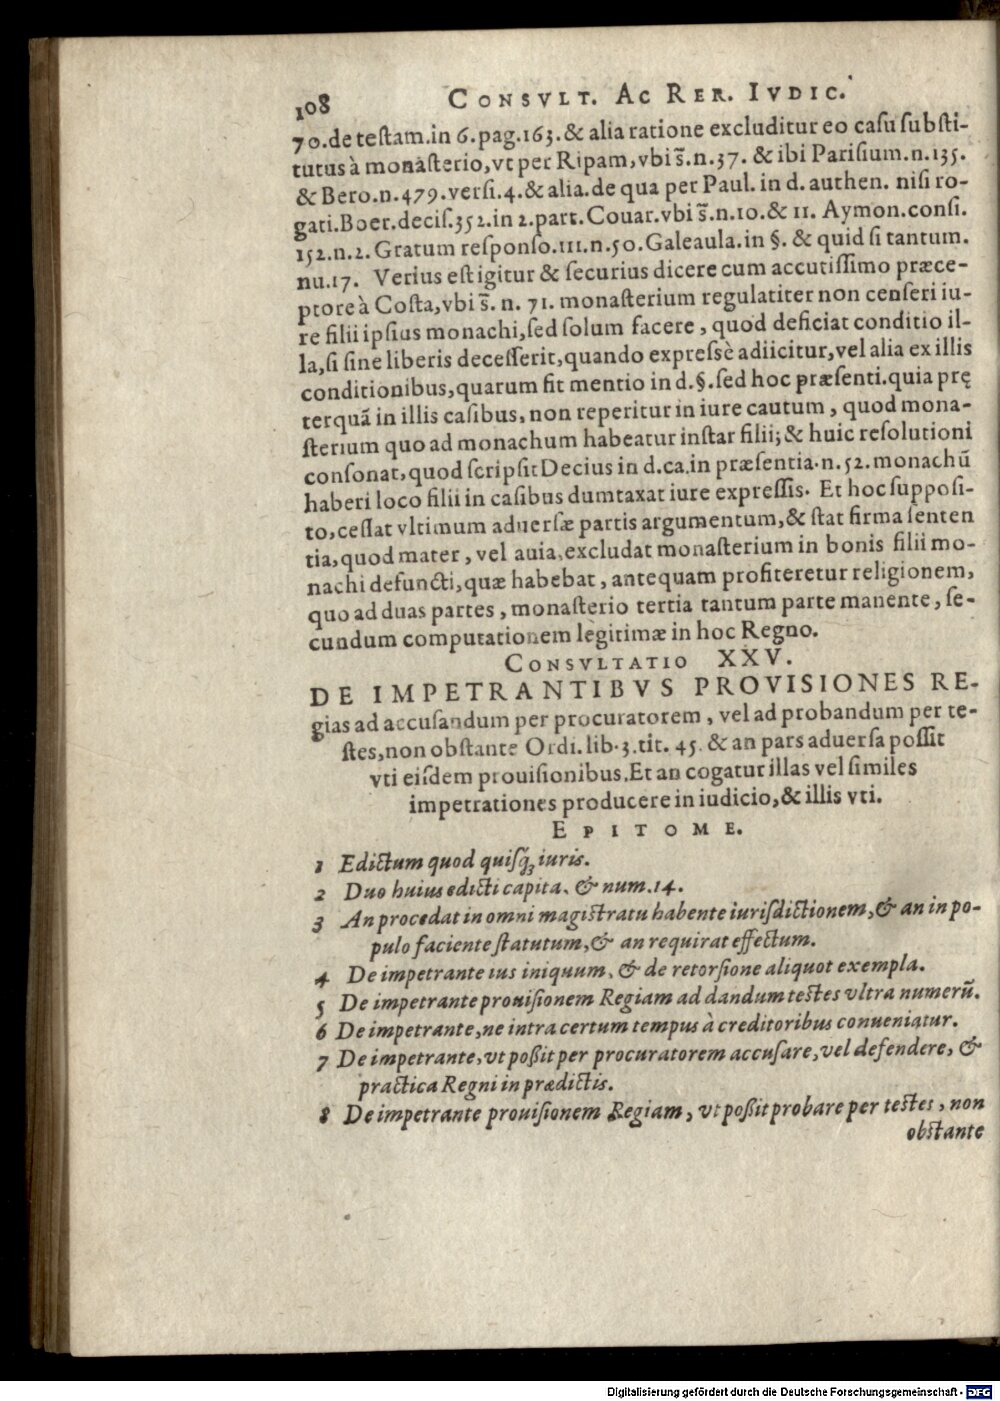 108 CONSVLT. AC RER. IVDIC.
70.de testam.in 6.pag.163.& alia ratione excluditur eo casu substi-
tutus à monasterio,vt per Ripam,vbi s̄.n.37. & ibi Parisium.n.135.
& Bero.n.479.versi.4.& alia.de qua per Paul. in d. authen. nisi ro-
gati.Boer.decis.352.in 2.part.Couar.vbi s̄.n.10.& 11. Aymon.consi.
152.n.2.Gratum responso.111.n.50.Galeaula.in §. & quid si tantum.
nu.17. Verius est igitur & securius dicere cum accutissimo præce-
ptore à Costa,vbi s̄. n. 71. monasterium regulatiter non censeri iu-
re filii ipsius monachi,sed solum facere, quod deficiat conditio il-
la,si sine liberis decesserit,quando expressè adiicitur,vel alia ex illis
conditionibus,quarum fit mentio in d.§.sed hoc præsenti.quia prę
terquã in illis casibus, non reperitur in iure cautum, quod mona-
sterium quo ad monachum habeatur instar filii;& huic resolutioni
consonat,quod scripsit Decius in d.ca.in præsentia.n.52.monachũ
haberi loco filii in casibus dumtaxat iure expressis. Et hoc supposi-
to,cessat vltimum aduersæ partis argumentum,& stat firma senten
tia,quod mater, vel auia,excludat monasterium in bonis filii mo-
nachi defuncti,quæ habebat, antequam profiteretur religionem,
quo ad duas partes, monasterio tertia tantum parte manente, se-
cundum computationem legitimæ in hoc Regno.
CONSVLTATIO XXV.
DE IMPETRANTIBVS PROVISIONES RE-
gias ad accusandum per procuratorem, vel ad probandum per te-
stes,non obstante Ordi.lib.3.tit. 45. & an pars aduersa possit
vti eisdem prouisionibus.Et an cogatur illas vel similes
impetrationes producere in iudicio,& illis vti.
EPITOME.
1 Edictum quod quisq́; iuris.
2 Duo huius edicti capita. & num.14.
3 An procedat in omni magistratu habente iurisdictionem,& an in po-
pulo faciente statutum,& an requirat effectum.
4 De impetrante ius iniquum, & de retorsione aliquot exempla.
5 De impetrante prouisionem Regiam ad dandum testes vltra numerũ.
6 De impetrante,ne intra certum tempus à creditoribus conueniatur.
7 De impetrante,vt poßit per procuratorem accusare,vel defendere, &
practica Regni in prædictis.
8 De impetrante prouisionem Regiam, vt poßit probare per testes, non
obstante
Digitalisierung gefördert durch die Deutsche Forschungsgemeinschaft - DFG